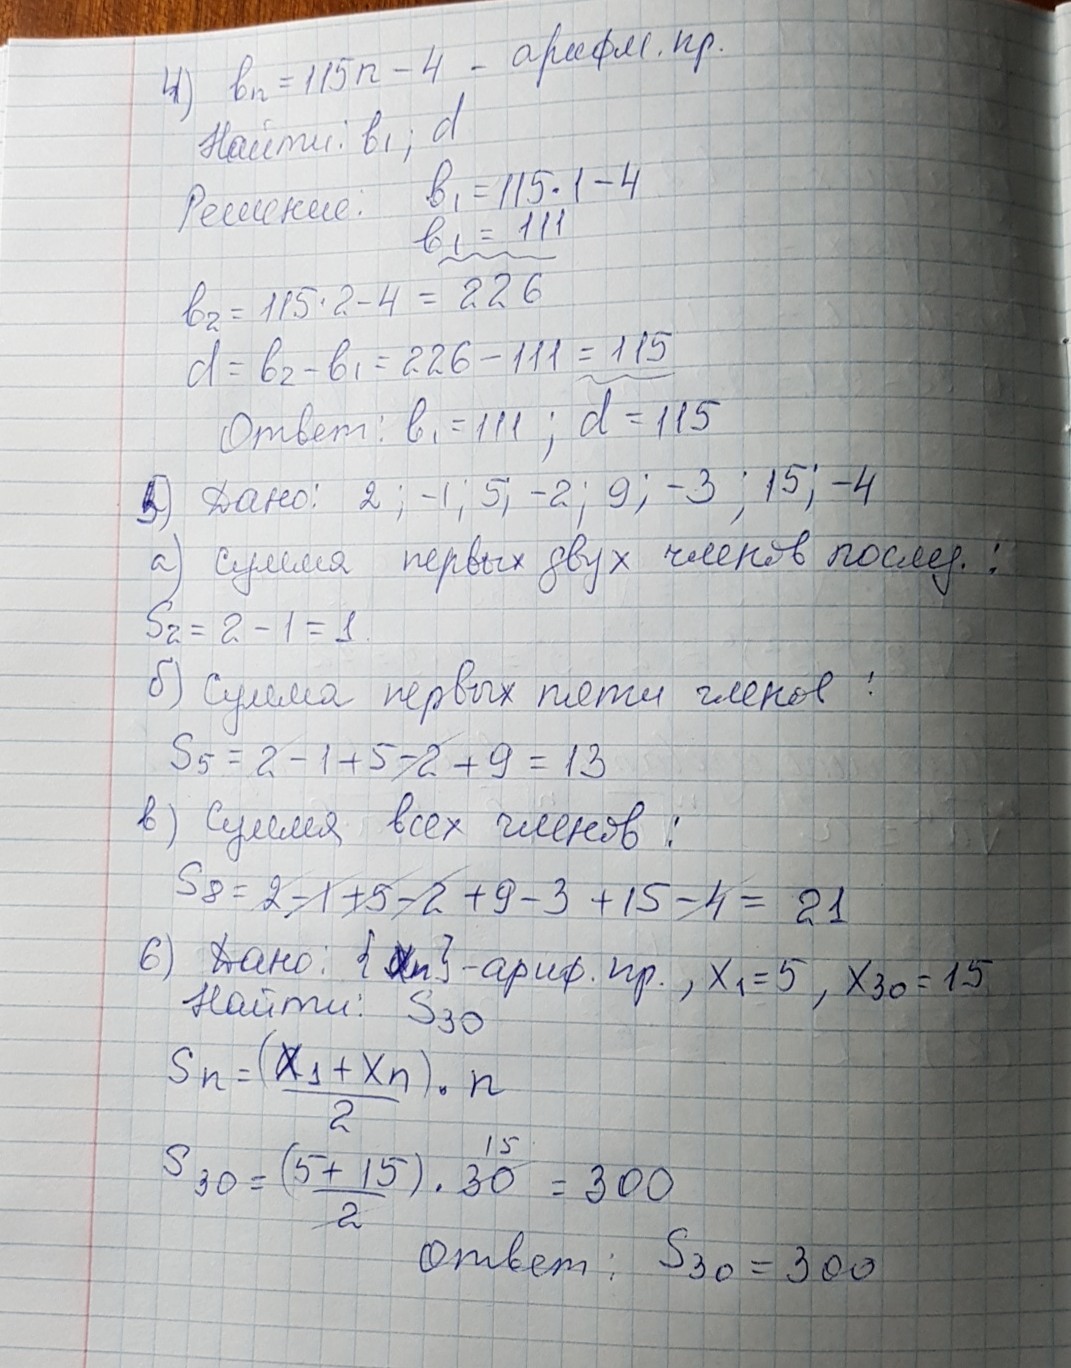 4) bn = 115n - 4 - арифм. пр.
Найти: b1; d
Решение: b1 = 115·1 - 4
b1 = 111
b2 = 115·2 - 4 = 226
d = b2 - b1 = 226 - 111 = 115
Ответ: b1 = 111; d = 115
5) Дано: 2; -1; 5; -2; 9; -3; 15; -4
а) Сумма первых двух членов послед.:
S2 = 2 - 1 = 1
б) Сумма первых пяти членов:
S5 = 2 - 1 + 5 - 2 + 9 = 13
в) Сумма всех членов:
S8 = 2 - 1 + 5 - 2 + 9 - 3 + 15 - 4 = 21
6) Дано: {xn} - ариф. пр., x1 = 5, x30 = 15
Найти: S30
Sn = (x1 + xn)/2 · n
S30 = (5 + 15)/2 · 30 15 = 300
Ответ: S30 = 300